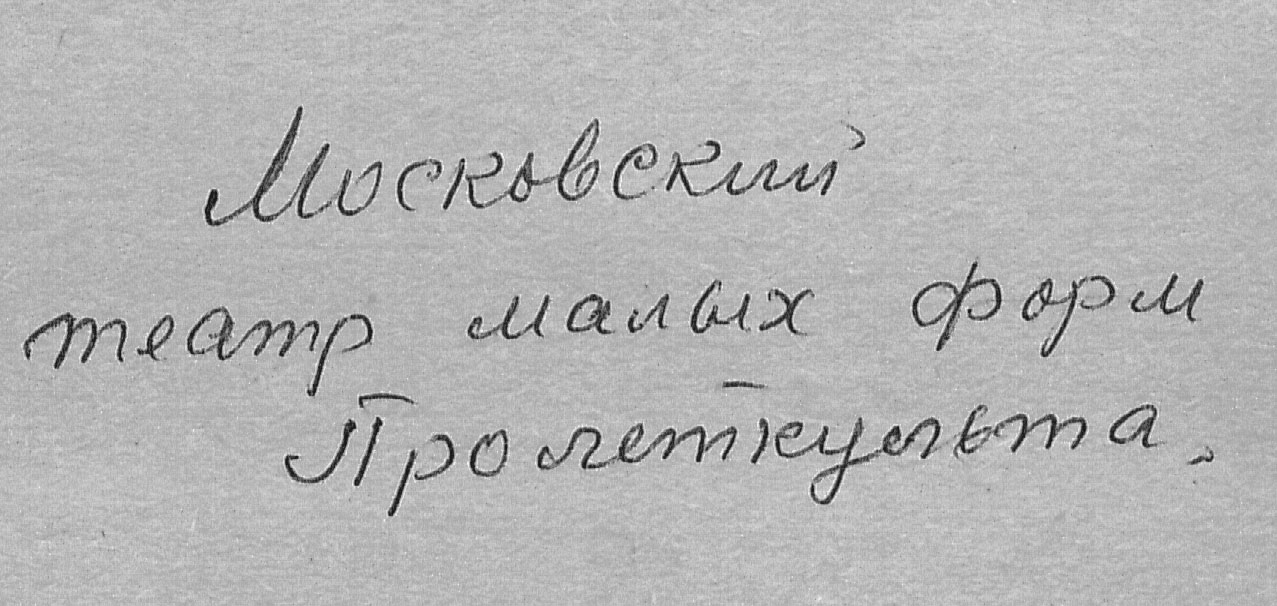 Московский
театр малых форм
Пролеткульта.